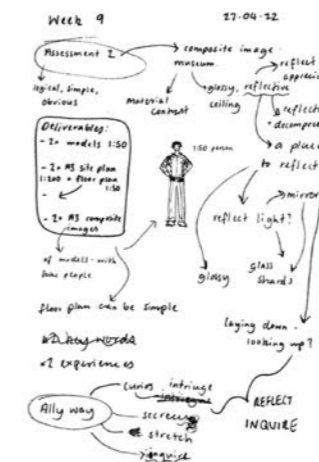 Week 9
27-04-22
Assessment 2
composite image.
museum.
logical, simple,
obvious
material
contrast
glossy, reflective
ceiling
reflect
reflect
a place
to reflect
Deliverables:
- 2x models 1:50
- 2x A3 site plan
1:200 + floor plan
1:50
-
- 2x A3 composite
images
1:50 person
mirror
reflect light?
glossy
glass
shards
of models - with
people
floor plan can be simple
key words
x2 experiences
laying down -
looking up?
Ally way
curios
intrigue
stretch
inquire
REFLECT
INQUIRE